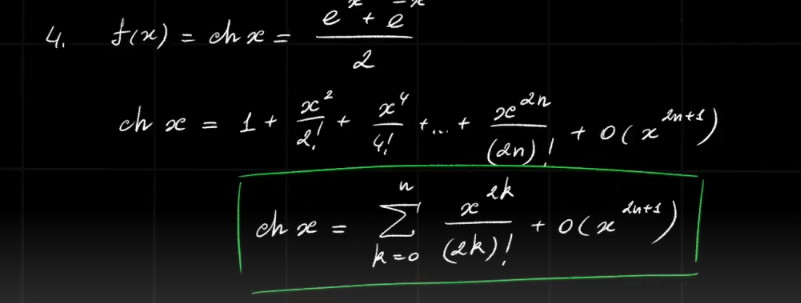 4. f(x) = ch x = (e^x + e^-x) / 2
ch x = 1 + x^2/2! + x^4/4! + ... + x^2n/(2n)! + o(x^2n+1)
ch x = Σ_{k=0}^{n} x^2k/(2k)! + o(x^2n+1)